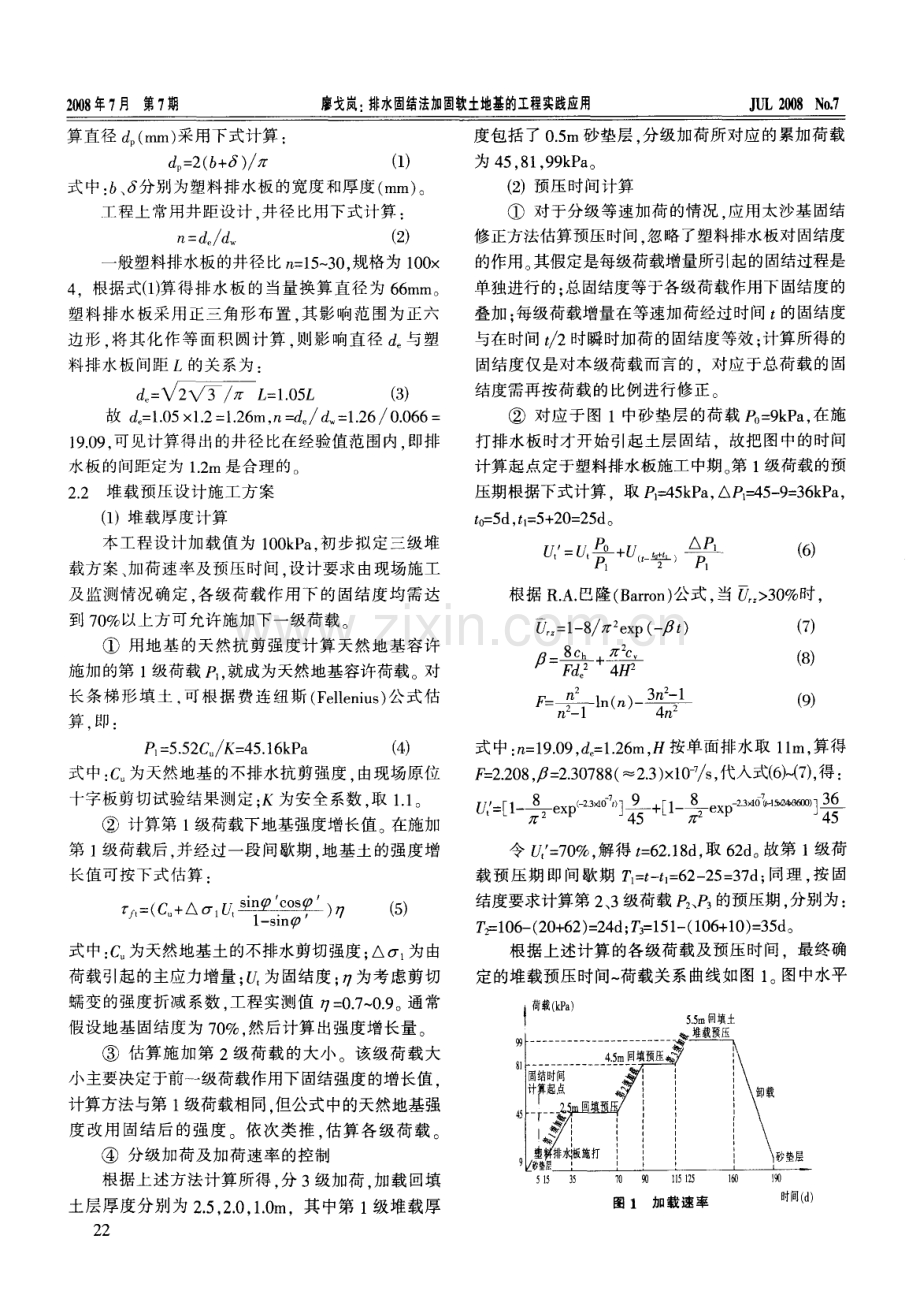 2008年7月 第7期 廖戈岚：排水固结法加固软土地基的工程实践应用 JUL 2008 No.7
算直径 dp(mm)采用下式计算：
dp=2(b+δ)/π (1)
式中：b、δ分别为塑料排水板的宽度和厚度(mm)。
工程上常用井距设计，井径比用下式计算：
n=de/dw (2)
一般塑料排水板的井径比 n=15~30，规格为 100×
4，根据式(1)算得排水板的当量换算直径为 66mm。
塑料排水板采用正三角形布置，其影响范围为正六
边形，将其化作等面积圆计算，则影响直径 de 与塑
料排水板间距 L 的关系为：
de=√2√3/π L=1.05L (3)
故 de=1.05×1.2=1.26m，n=de/dw=1.26/0.066=
19.09，可见计算得出的井径比在经验值范围内，即排
水板的间距定为 1.2m 是合理的。
2.2 堆载预压设计施工方案
(1) 堆载厚度计算
本工程设计加载值为 100kPa，初步拟定三级堆
载方案、加荷速率及预压时间，设计要求由现场施工
及监测情况确定，各级荷载作用下的固结度均需达
到 70%以上方可允许施加下一级荷载。
① 用地基的天然抗剪强度计算天然地基容许
施加的第 1 级荷载 P1，就成为天然地基容许荷载。对
长条梯形填土，可根据费连纽斯(Fellenius)公式估
算，即：
P1=5.52Cu/K=45.16kPa (4)
式中：Cu 为天然地基的不排水抗剪强度，由现场原位
十字板剪切试验结果测定；K 为安全系数，取 1.1。
② 计算第 1 级荷载下地基强度增长值。在施加
第 1 级荷载后，并经过一段间歇期，地基土的强度增
长值可按下式估算：
τft=(Cu+△σ1Ut sinφ′cosφ′/1-sinφ′)η (5)
式中：Cu 为天然地基土的不排水剪切强度；△σ1 为由
荷载引起的主应力增量；Ut 为固结度；η 为考虑剪切
蠕变的强度折减系数，工程实测值 η=0.7~0.9。通常
假设地基固结度为 70%，然后计算出强度增长量。
③ 估算施加第 2 级荷载的大小。该级荷载大
小主要决定于前一级荷载作用下固结强度的增长值，
计算方法与第 1 级荷载相同，但公式中的天然地基强
度改用固结后的强度。依次类推，估算各级荷载。
④ 分级加荷及加荷速率的控制
根据上述方法计算所得，分 3 级加荷，加载回填
土层厚度分别为 2.5，2.0，1.0m，其中第 1 级堆载厚
22
度包括了 0.5m 砂垫层，分级加荷所对应的累加荷载
为 45，81，99kPa。
(2) 预压时间计算
① 对于分级等速加荷的情况，应用太沙基固结
修正方法估算预压时间，忽略了塑料排水板对固结度
的作用。其假定是每级荷载增量所引起的固结过程是
单独进行的；总固结度等于各级荷载作用下固结度的
叠加；每级荷载增量在等速加荷经过时间 t 的固结度
与在时间 t/2 时瞬时加荷的固结度等效；计算所得的
固结度仅是对本级荷载而言的，对应于总荷载的固
结度需再按荷载的比例进行修正。
② 对应于图 1 中砂垫层的荷载 P0=9kPa，在施
打排水板时才开始引起土层固结，故把图中的时间
计算起点定于塑料排水板施工中期。第 1 级荷载的预
压期根据下式计算，取 P1=45kPa，△P1=45-9=36kPa，
t0=5d，t1=5+20=25d。
Ut′=Ut P0/P1+U(t-(t0+t1)/2) △P1/P1 (6)
根据 R.A.巴隆(Barron)公式，当 Ūrz>30%时，
Ūrz=1-8/π²exp(-βt) (7)
β=8ch/Fde²+π²cv/4H² (8)
F=n²/n²-1 ln(n)-3n²-1/4n² (9)
式中：n=19.09，de=1.26m，H 按单面排水取 11m，算得
F=2.208，β=2.30788(≈2.3)×10⁻⁷/s，代入式(6)~(7)，得：
Ut′=[1-8/π² exp(-2.3×10⁻⁷t)]9/45+[1-8/π² exp-2.3×10⁻⁷(t-15×24×3600)]36/45
令 Ut′=70%，解得 t=62.18d，取 62d。故第 1 级荷
载预压期即间歇期 T1=t-t1=62-25=37d；同理，按固
结度要求计算第 2、3 级荷载 P2、P3 的预压期，分别为：
T2=106-(20+62)=24d；T3=151-(106+10)=35d。
根据上述计算的各级荷载及预压时间，最终确
定的堆载预压时间~荷载关系曲线如图 1。图中水平
荷载(kPa)
99
81
45
9
5.5m 回填土
堆载预压
第3级加载
4.5m 回填预压
第2级加载
固结时间
计算起点
2.5m 回填预压
第1级加载
塑料排水板施打
砂垫层
卸载
砂垫层
5 15 35 70 90 115 125 160 190
时间(d)
图 1 加载速率
www.zixin.com.cn